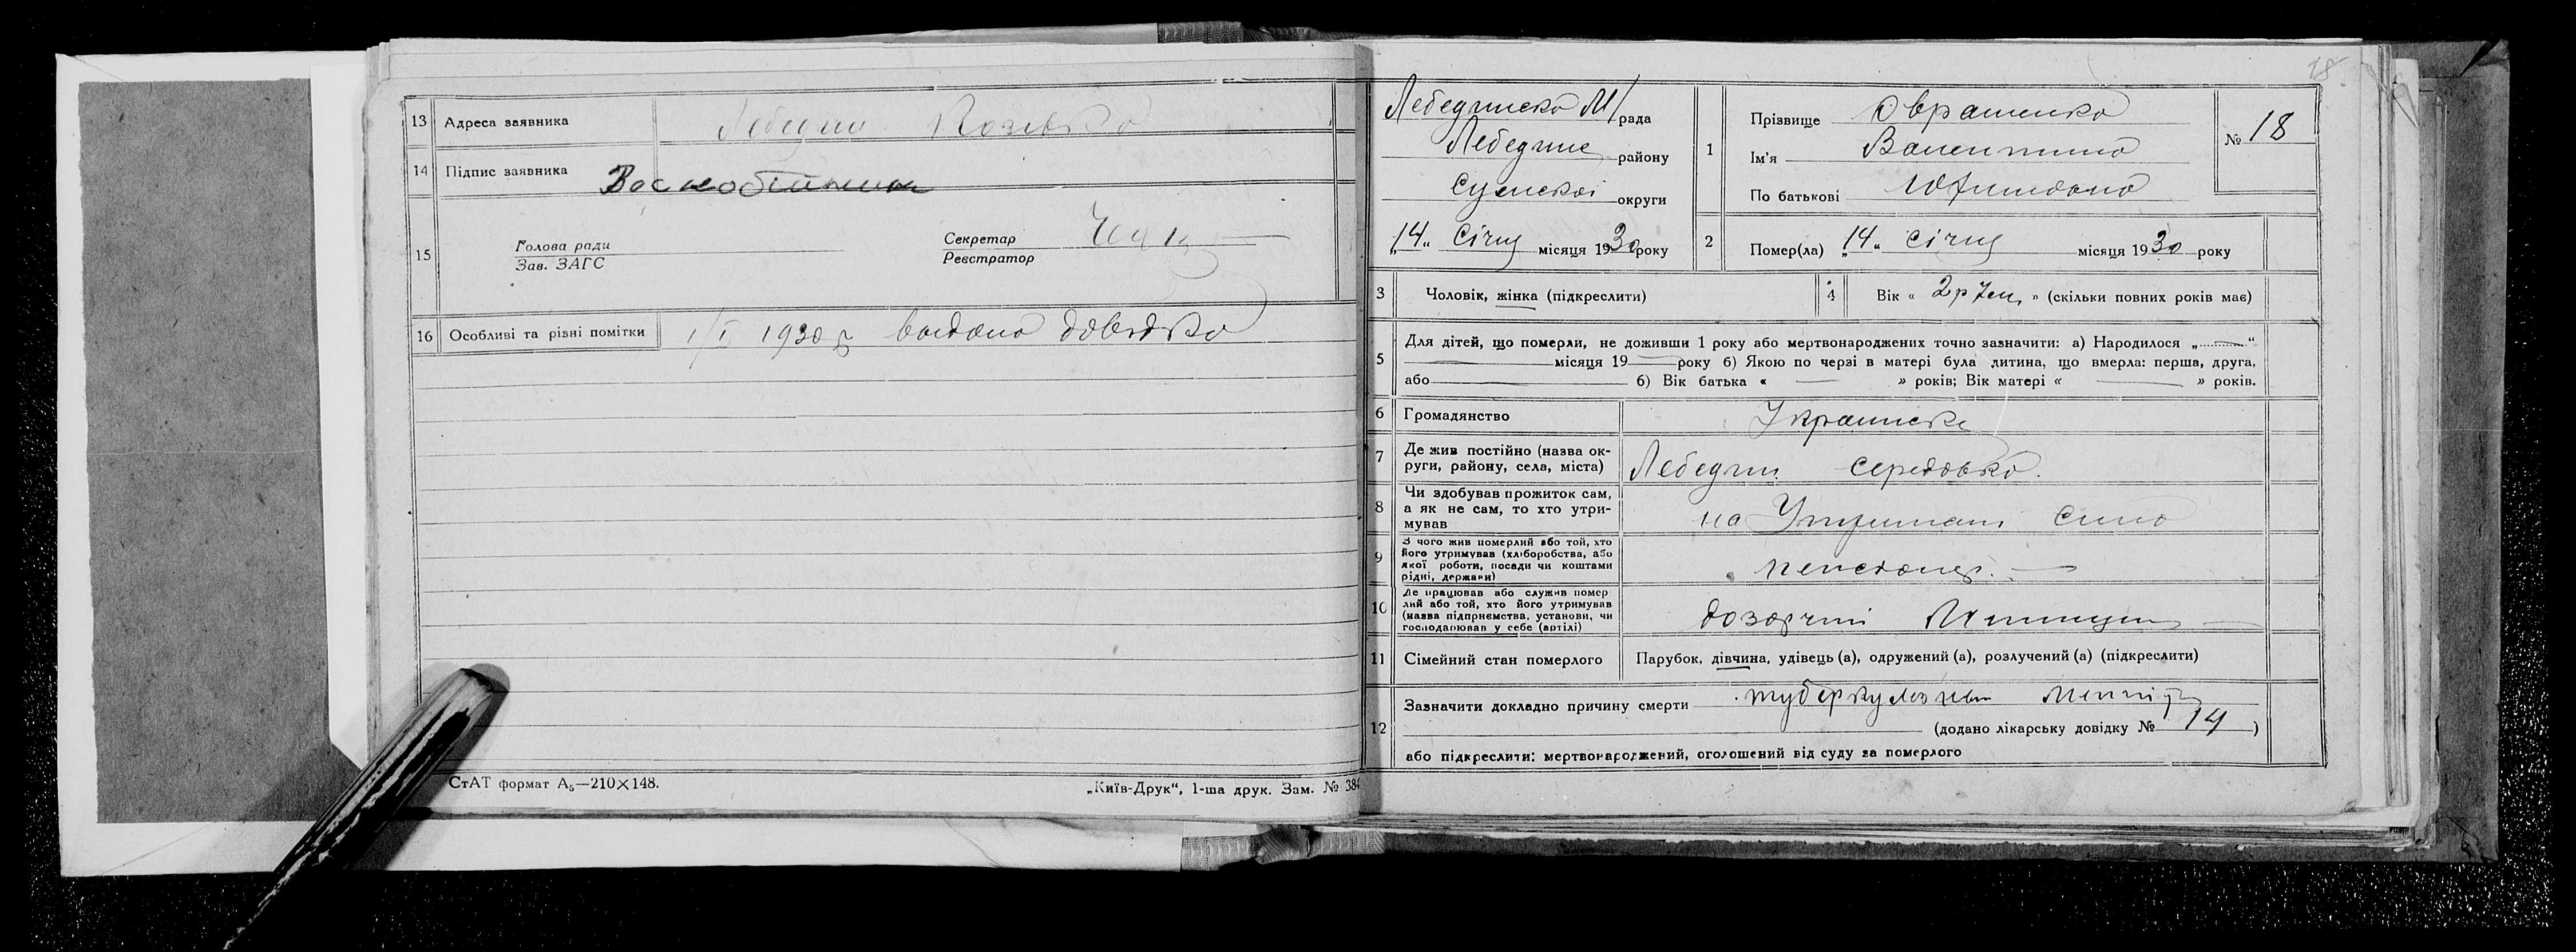 13 Адреса заявника Лебедин
14 Підпис заявника
15 Голова ради
Зав. ЗАГС
Секретар
Реєстратор
16 Особливі та різні помітки 1/I 1930 р видана довідка
СтАТ формат А₅—210×148.
„Київ-Друк“, 1-ша друк. Зам. № 384
18
Лебединська М/рада
Лебединс району
Сумської округи
„14“ Січня місяця 1930 року
1 Прізвище
Ім'я Валентина
По батькові
№ 18
2 Помер(ла) „14“ січня місяця 1930 року
3 Чоловік, жінка (підкреслити)
4 Вік « 2р 7м » (скільки повних років має)
5 Для дітей, що померли, не доживши 1 року або мертвонароджених точно зазначити: а) Народилося „ “
місяця 19 року б) Якою по черзі в матері була дитина, що вмерла: перша, друга,
або б) Вік батька « » років; Вік матері « » років.
6 Громадянство Украинське
7 Де жив постійно (назва ок-
руги, району, села, міста) Лебедин Середовка.
8 Чи здобував прожиток сам,
а як не сам, то хто утри-
мував на Утримані
9 З чого жив померлий або той, хто
його утримував (хліборобства, або
якої роботи, посади чи коштами
рідні, держави) пенсіонер.
10 Де працював або служив помер
лий або той, хто його утримував
(назва підприємства, установи, чи
господарював у себе (артілі)
11 Сімейний стан померлого Парубок, дівчина, удівець (а), одружений (а), розлучений (а) (підкреслити)
12 Зазначити докладно причину смерти туберкульозный менінгіт
(додано лікарську довідку № 14 )
або підкреслити: мертвонароджений, оголошений від суду за померлого